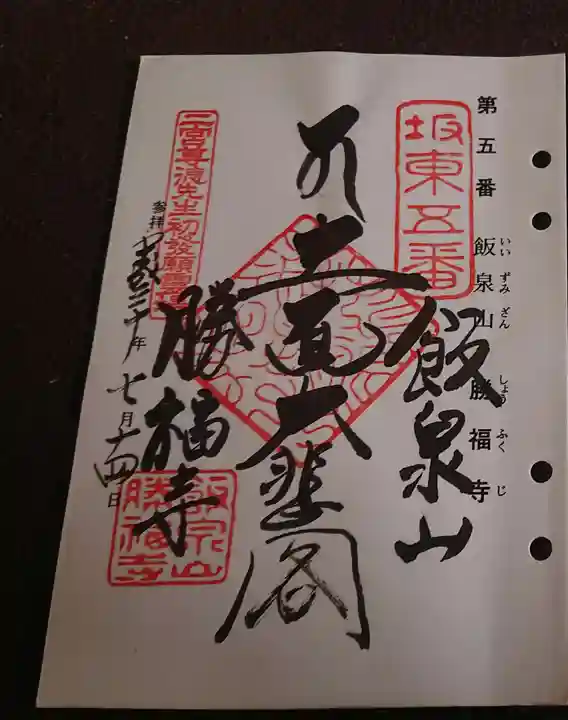 第五番 飯泉山 勝福寺
いいずみざん しょうふくじ
坂東五番
飯泉山
大悲閣
勝福寺
二宮尊徳先生初発願霊
参拝 三十年七月十四日
飯泉山
勝福寺